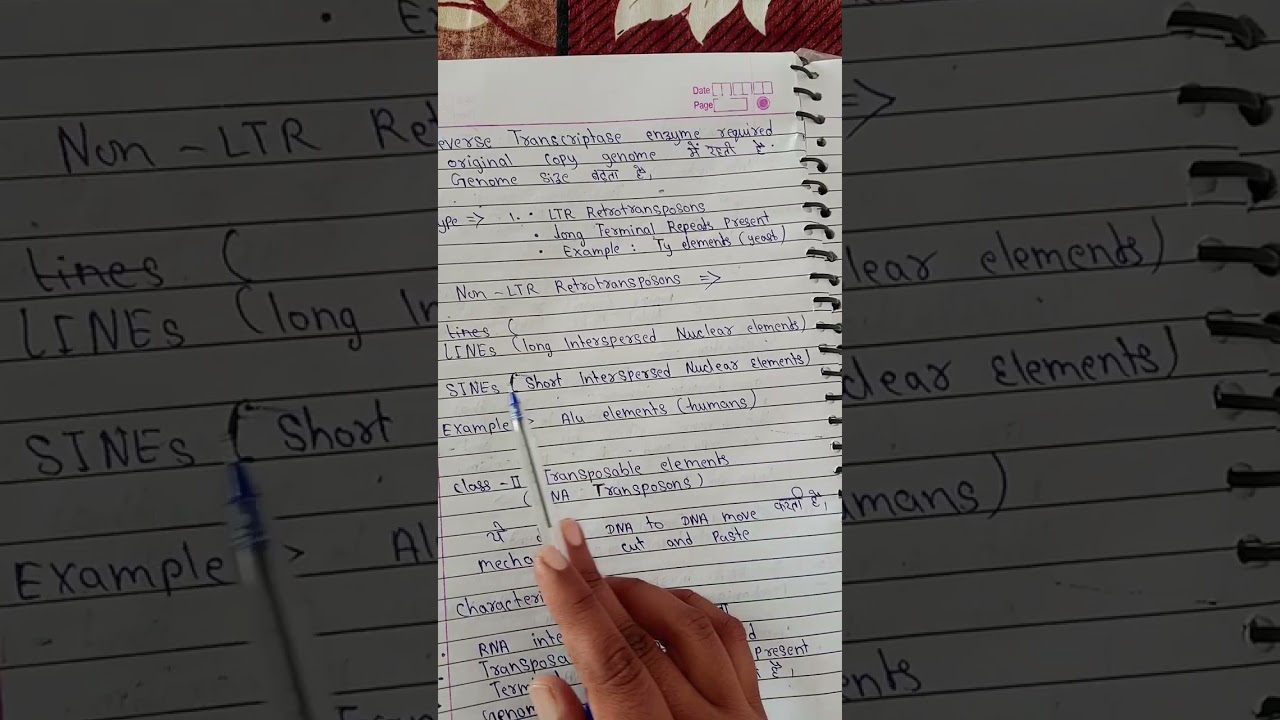 Date
Page
everse Transcriptase enzyme required
original copy genome में रहती है.
Genome size बढ़ता है,
ype => 1. • LTR Retrotransposons
• Long Terminal Repeats Present
• Example : Ty elements (yeast)
Non - LTR Retrotransposons =>
Lines (
LINEs (long Interspersed Nuclear elements)
SINEs (Short Interspersed Nuclear Elements)
Example > Alu elements (humans)
class - II Transposable elements
( NA Transposons)
ये DNA to DNA move करती है,
mecha cut and Paste
characteri
• RNA inte
Transposa Present
Term है,
Genom